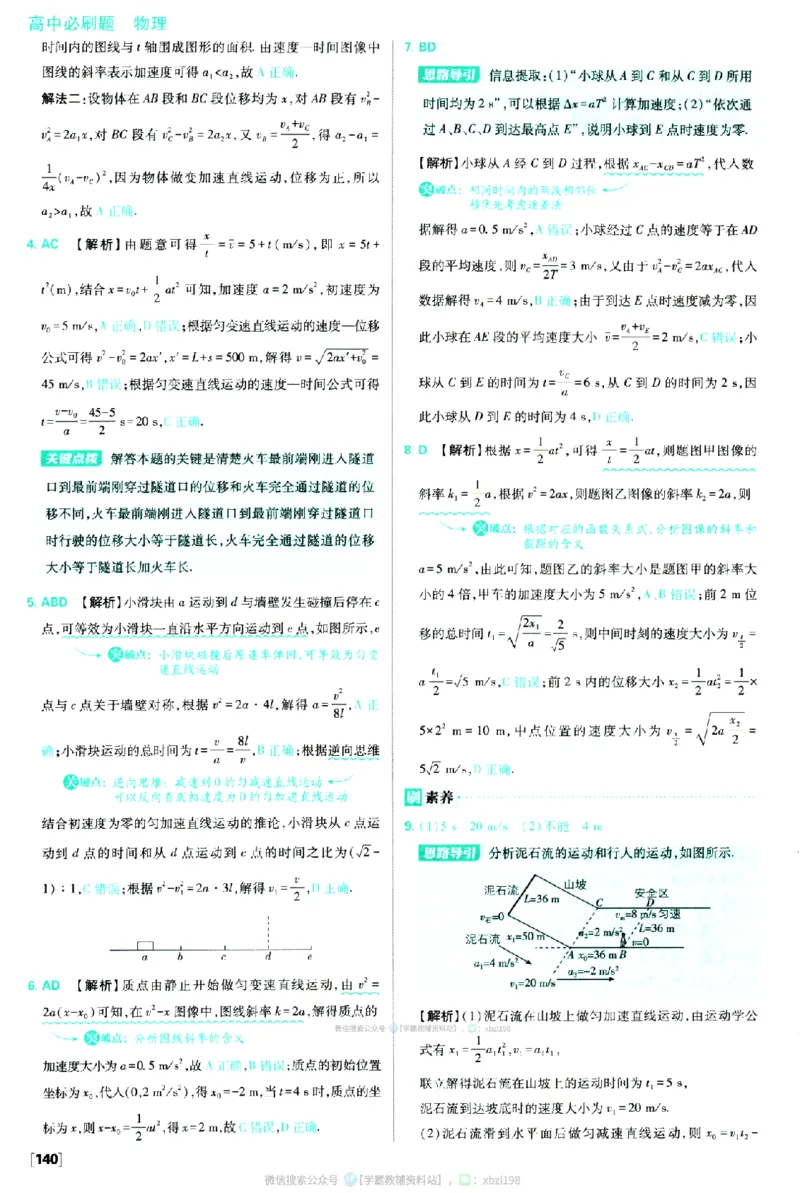 高中必刷题 物理
时间内的图线与 t 轴围成图形的面积. 由速度—时间图像中
图线的斜率表示加速度可得 a₁<a₂,故 A 正确.
解法二:设物体在 AB 段和 BC 段位移均为 x,对 AB 段有 v_B²-
v_A²=2a₁x,对 BC 段有 v_C²-v_B²=2a₂x,又 v_B=(v_A+v_C)/2,得 a₂-a₁=
1/(4x)(v_A-v_C)²,因为物体做变加速直线运动,位移为正,所以
a₂>a₁,故 A 正确.
4. AC 【解析】由题意可得 x/t=v̄=5+t(m/s),即 x=5t+
t²(m),结合 x=v₀t+1/2 at² 可知,加速度 a=2 m/s²,初速度为
v₀=5 m/s,A 正确,D 错误;根据匀变速直线运动的速度—位移
公式可得 v²-v₀²=2ax',x'=L+s=500 m,解得 v=√(2ax'+v₀²)=
45 m/s,B 错误;根据匀变速直线运动的速度—时间公式可得
t=(v-v₀)/a=(45-5)/2 s=20 s,C 正确.
关键点拨 解答本题的关键是清楚火车最前端刚进入隧道
口到最前端刚穿过隧道口的位移和火车完全通过隧道的位
移不同,火车最前端刚进入隧道口到最前端刚穿过隧道口
时行驶的位移大小等于隧道长,火车完全通过隧道的位移
大小等于隧道长加火车长.
5. ABD 【解析】小滑块由 a 运动到 d 与墙壁发生碰撞后停在 c
点,可等效为小滑块一直沿水平方向运动到 e 点,如图所示,e
突破点: 小滑块碰撞后原速率弹回,可等效为匀变
速直线运动
点与 c 点关于墙壁对称,根据 v²=2a·4l,解得 a=v²/8l,A 正
确;小滑块运动的总时间为 t=v/a=8l/v,B 正确;根据逆向思维
关键点: 逆向思维: 减速到 0 的匀减速直线运动
可以反向看成初速度为 0 的匀加速直线运动
结合初速度为零的匀加速直线运动的推论,小滑块从 c 点运
动到 d 点的时间和从 d 点运动到 e 点的时间之比为(√2-
1):1,C 错误;根据 v²-v₁²=2a·3l,解得 v₁=v/2,D 正确.
a b c d e
6. AD 【解析】质点由静止开始做匀变速直线运动,由 v²=
2a(x-x₀)可知,在 v²-x 图像中,图线斜率 k=2a,解得质点的
突破点: 分析图线斜率的含义
加速度大小为 a=0.5 m/s²,故 A 正确,B 错误;质点的初始位置
坐标为 x₀,代入(0,2 m²/s²),得 x₀=-2 m,当 t=4 s 时,质点的坐
标为 x,则 x-x₀=1/2 at²,得 x=2 m,故 C 错误,D 正确.
[140]
7. BD
思路导引 信息提取:(1)“小球从 A 到 C 和从 C 到 D 所用
时间均为 2 s”,可以根据 Δx=aT² 计算加速度;(2)“依次通
过 A、B、C、D 到达最高点 E”,说明小球到 E 点时速度为零.
【解析】小球从 A 经 C 到 D 过程,根据 x_AC-x_CD=aT²,代入数
突破点: 相同时间内的两段相邻位
移优先考虑逐差法
据解得 a=0.5 m/s²,A 错误;小球经过 C 点的速度等于在 AD
段的平均速度,则 v_C=x_AD/2T=3 m/s,又由于 v_A²-v_C²=2ax_AC,代入
数据解得 v_A=4 m/s,B 正确;由于到达 E 点时速度减为零,因
此小球在 AE 段的平均速度大小 v̄=(v_A+v_E)/2=2 m/s,C 错误;小
球从 C 到 E 的时间为 t=v_C/a=6 s,从 C 到 D 的时间为 2 s,因
此小球从 D 到 E 的时间为 4 s,D 正确.
8 D 【解析】根据 x=1/2 at²,可得 x/t=1/2 at,则题图甲图像的
斜率 k₁=1/2 a,根据 v²=2ax,则题图乙图像的斜率 k₂=2a,则
突破点: 根据对应的函数关系式,分析图像的斜率和
截距的含义
a=5 m/s²,由此可知,题图乙的斜率大小是题图甲的斜率大
小的 4 倍,甲车的加速度大小为 5 m/s²,A、B 错误;前 2 m 位
移的总时间 t₁=√(2x₁/a)=2/√5 s,则中间时刻的速度大小为 v_(t/2)=
a t₁/2=√5 m/s,C 错误;前 2 s 内的位移大小 x₂=1/2 at₂²=1/2×
5×2² m=10 m,中点位置的速度大小为 v_(x/2)=√(2a x₂/2)=
5√2 m/s,D 正确.
刷 素养
9. (1)5 s 20 m/s (2)不能 4 m
思路导引 分析泥石流的运动和行人的运动,如图所示.
泥石流
山坡
L=36 m
安全区
C D
v_石=0
v_m=8 m/s 匀速
泥石流 x₁=50 m
a₃=2 m/s²
L=36 m
v=0
A x₀=36 m B
a₁=4 m/s²
a₂=-2 m/s²
v₁=20 m/s
【解析】(1)泥石流在山坡上做匀加速直线运动,由运动学公
微信搜索公众号【学霸教辅资料站】, : xbzl198
式有 x₁=1/2 a₁t₁²,v₁=a₁t₁,
联立解得泥石流在山坡上的运动时间为 t₁=5 s,
泥石流到达坡底时的速度大小为 v₁=20 m/s.
(2)泥石流滑到水平面后做匀减速直线运动,则 x₀=v₁t₂-
微信搜索公众号【学霸教辅资料站】, : xbzl198